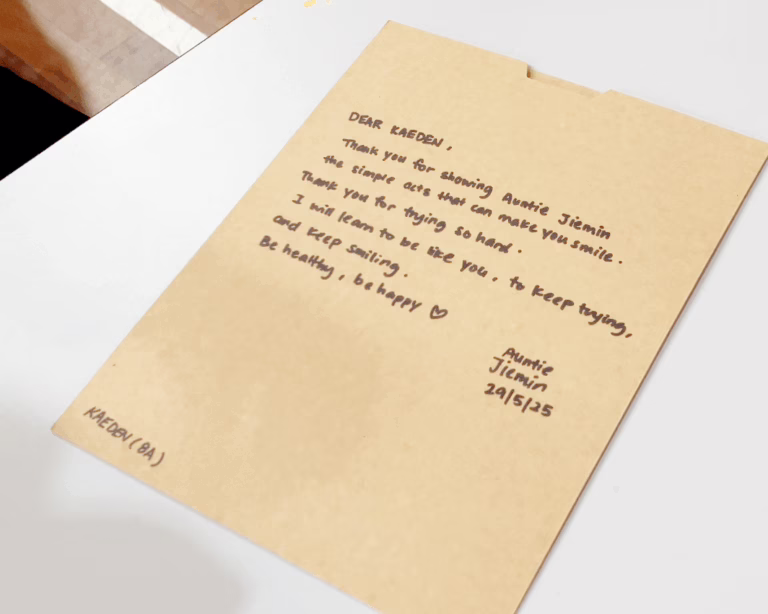 DEAR KAEDEN,
Thank you for showing Auntie Jiemin
the simple acts that can make you smile.
Thank you for trying so hard.
I will learn to be like you, to keep trying,
and keep smiling.
Be healthy, be happy ♡
Auntie
Jiemin
29/5/25
KAEDEN (8A)